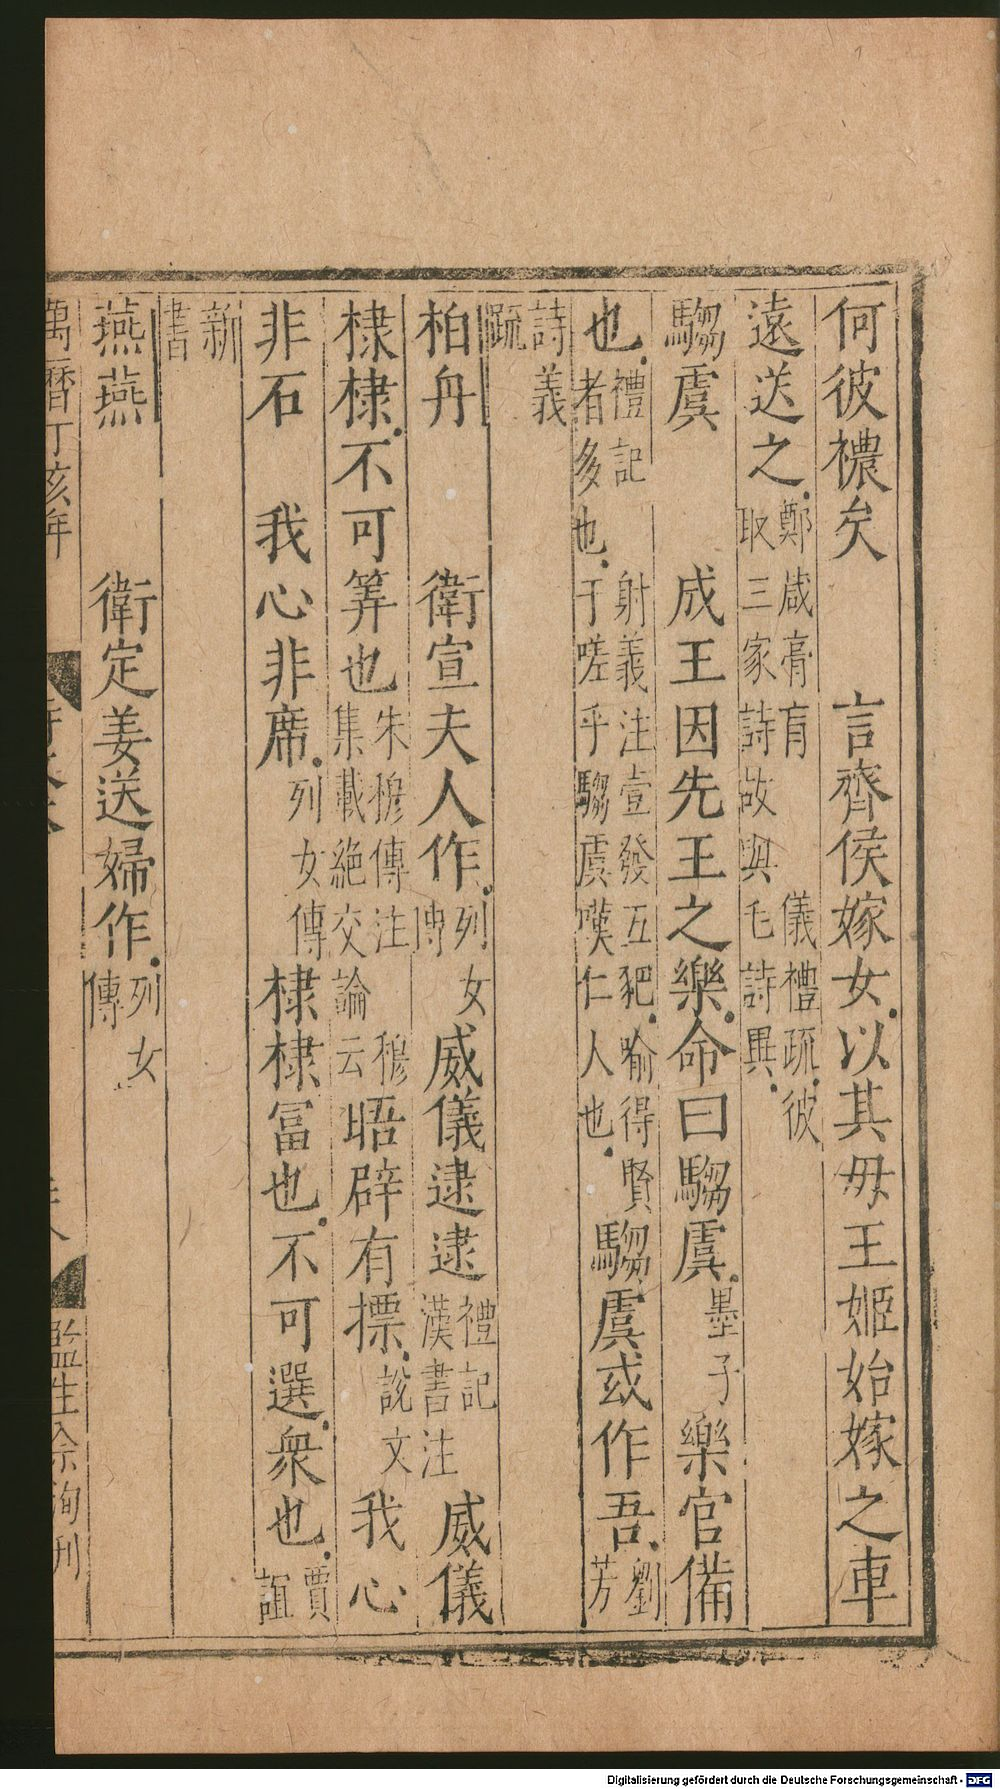 何彼襛矣　言齊侯嫁女以其毋王姬始嫁之車
遠送之鄭箴膏肓　儀禮疏彼取三家詩故與毛詩異
騶虞　成王因先王之樂命曰騶虞墨子樂官備
也禮記射義注壹發五豝喻得賢者多也于嗟乎騶虞嘆仁人也騶虞或作吾劉芳
詩義疏
柏舟　衛宣夫人作列女傳威儀逮逮禮記漢書注威儀
棣棣不可筭也朱穆傳注穆集載絶交論云晤辟有摽說文我心
非石　我心非席列女傳棣棣冨也不可選衆也賈誼
新書
燕燕　衛定姜送婦作列女傳
萬曆丁亥年
監生徐洵刊
Digitalisierung gefördert durch die Deutsche Forschungsgemeinschaft - DFG